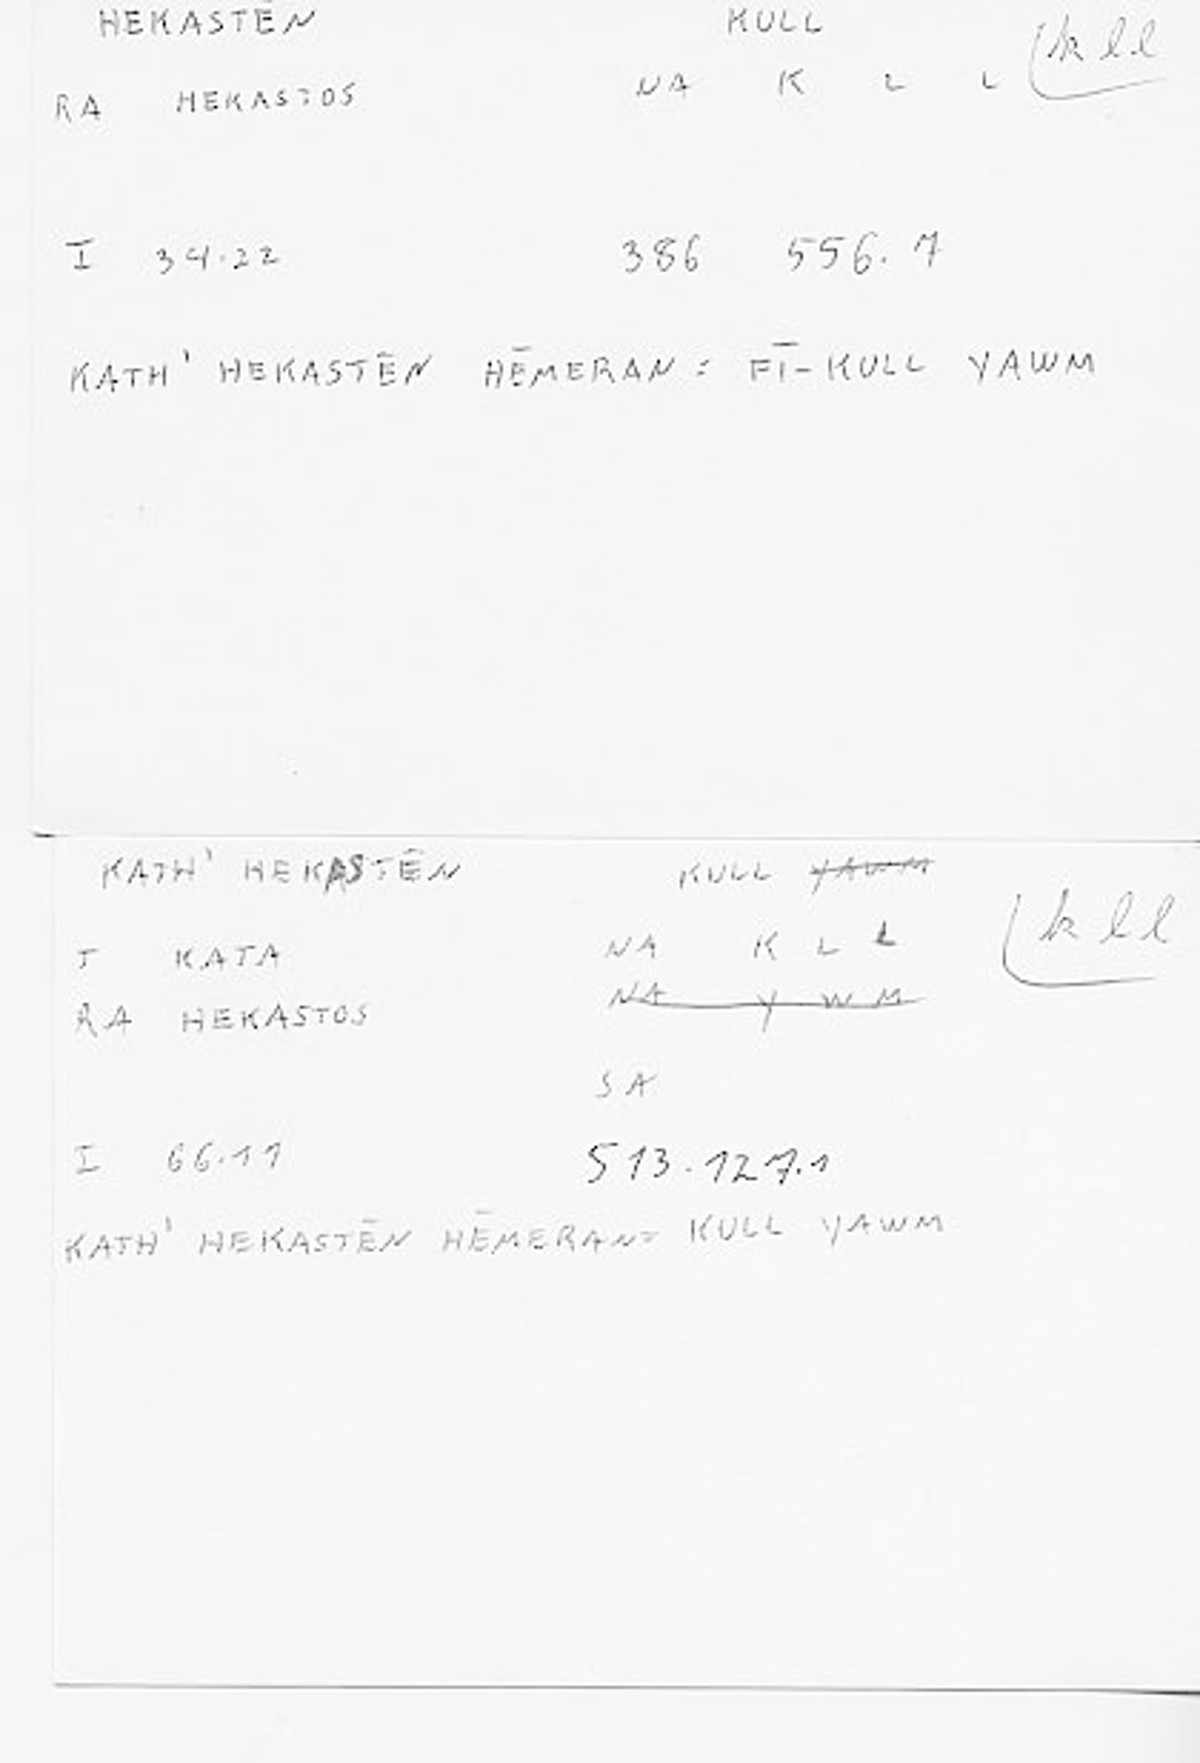 HEKASTĒN KULL kll
RA HEKASTOS NA K L L
I 34.22 386 556.7
KATH' HEKASTĒN HĒMERAN = FĪ-KULL YAWM
KATH' HEKASTĒN KULL YAWM kll
J KATA NA K L L
RA HEKASTOS NA Y W M
SA
I 66.11 513.127.1
KATH' HEKASTĒN HĒMERAN = KULL YAWM